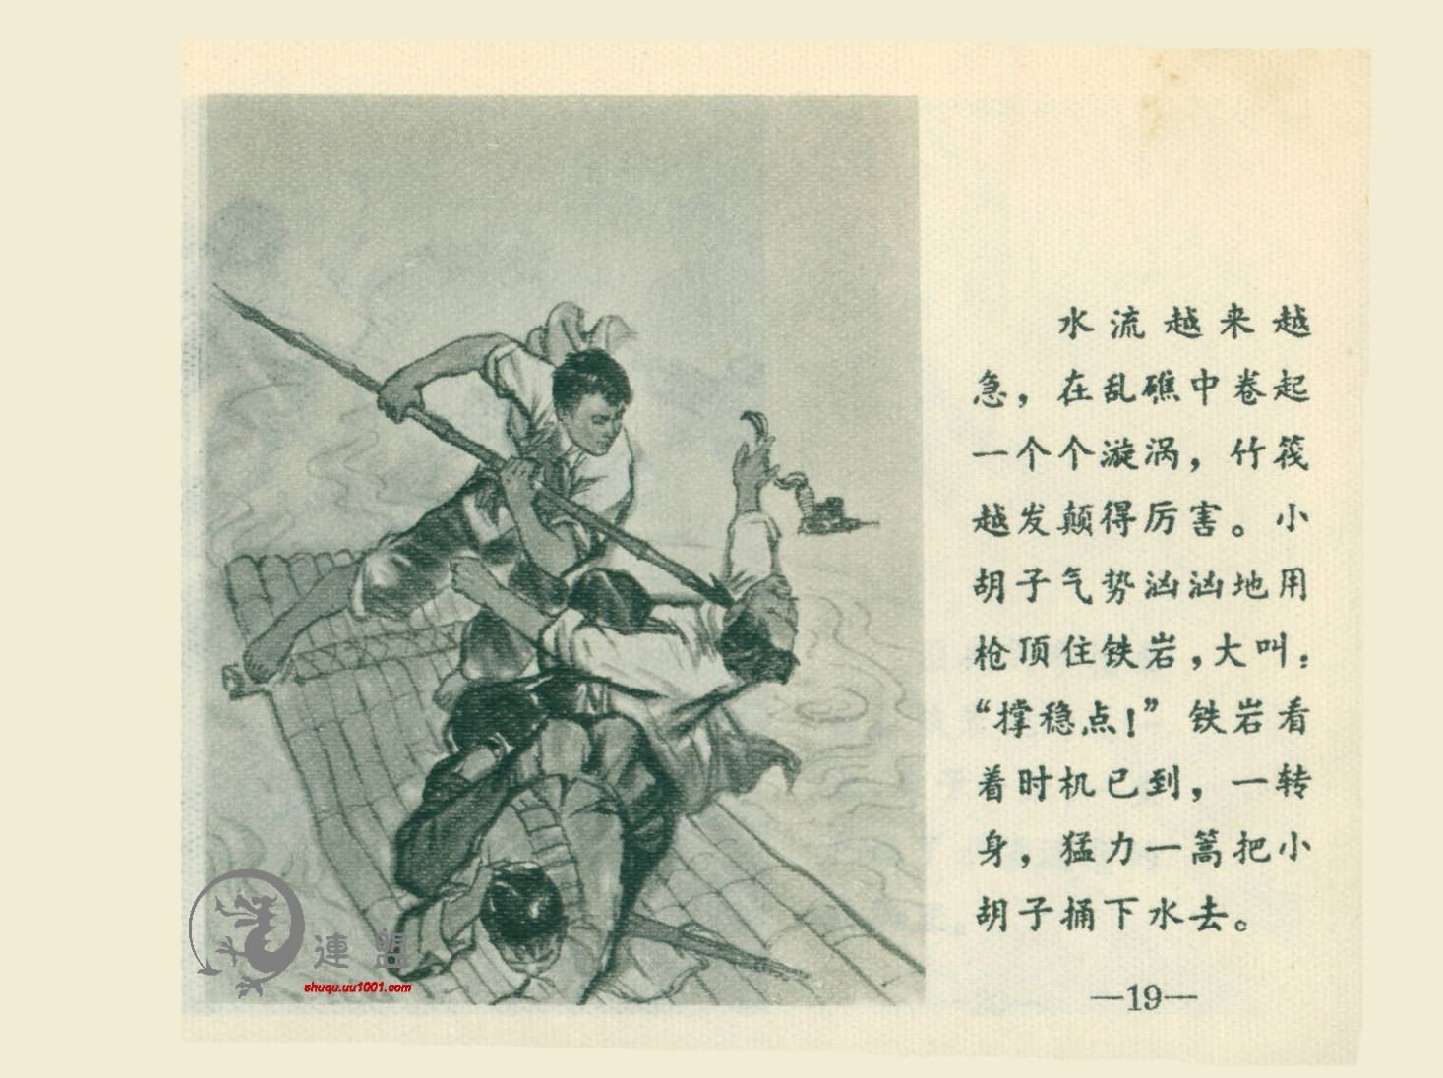 水流越来越
急，在乱礁中卷起
一个个漩涡，竹筏
越发颠得厉害。小
胡子气势汹汹地用
枪顶住铁岩，大叫：
“撑稳点！”铁岩看
着时机已到，一转
身，猛力一篙把小
胡子捅下水去。
—19—
連盟
shuqu.uu1001.com